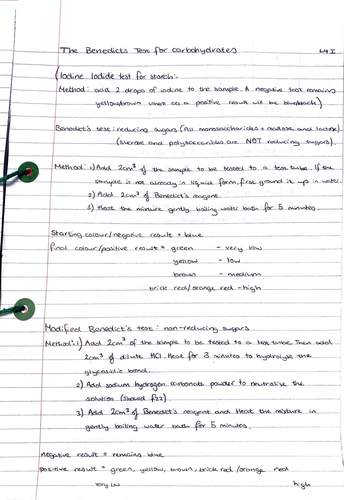 The Benedicts Test for carbohydrates
(Iodine Iodide test for starch:
Method: add 2 drops of iodine to the sample. A negative test remains
yellow/brown where as a positive result will be blue/black)
Benedict's test: reducing sugars (All monosaccharides + maltose and lactose)
(sucrose and polysaccarides are NOT reducing sugars).
Method: 1) Add 2cm³ of the sample to be tested to a test tube. If the
sample is not already in liquid form, first ground it up in water.
2) Add 2cm³ of Benedict's reagent.
3) Heat the mixture gently boiling water bath for 5 minutes.
Starting colour/negative result = blue
final colour/positive result = green - very low
yellow - low
brown - medium
brick red/orange red - high
Modified Benedict's test: non-reducing sugars
Method: 1) Add 2cm³ of the sample to be tested to a test tube. Then add
2cm³ of dilute HCl. Heat for 3 minutes to hydrolyse the
glycosidic bond.
2) Add sodium hydrogen carbonate powder to neutralise the
solution (should fizz).
3) Add 2cm³ of Benedict's reagent and heat the mixture in
gently boiling water bath for 5 minutes.
negative result = remains blue
positive result = green, yellow, brown, brick red/orange red
very low high